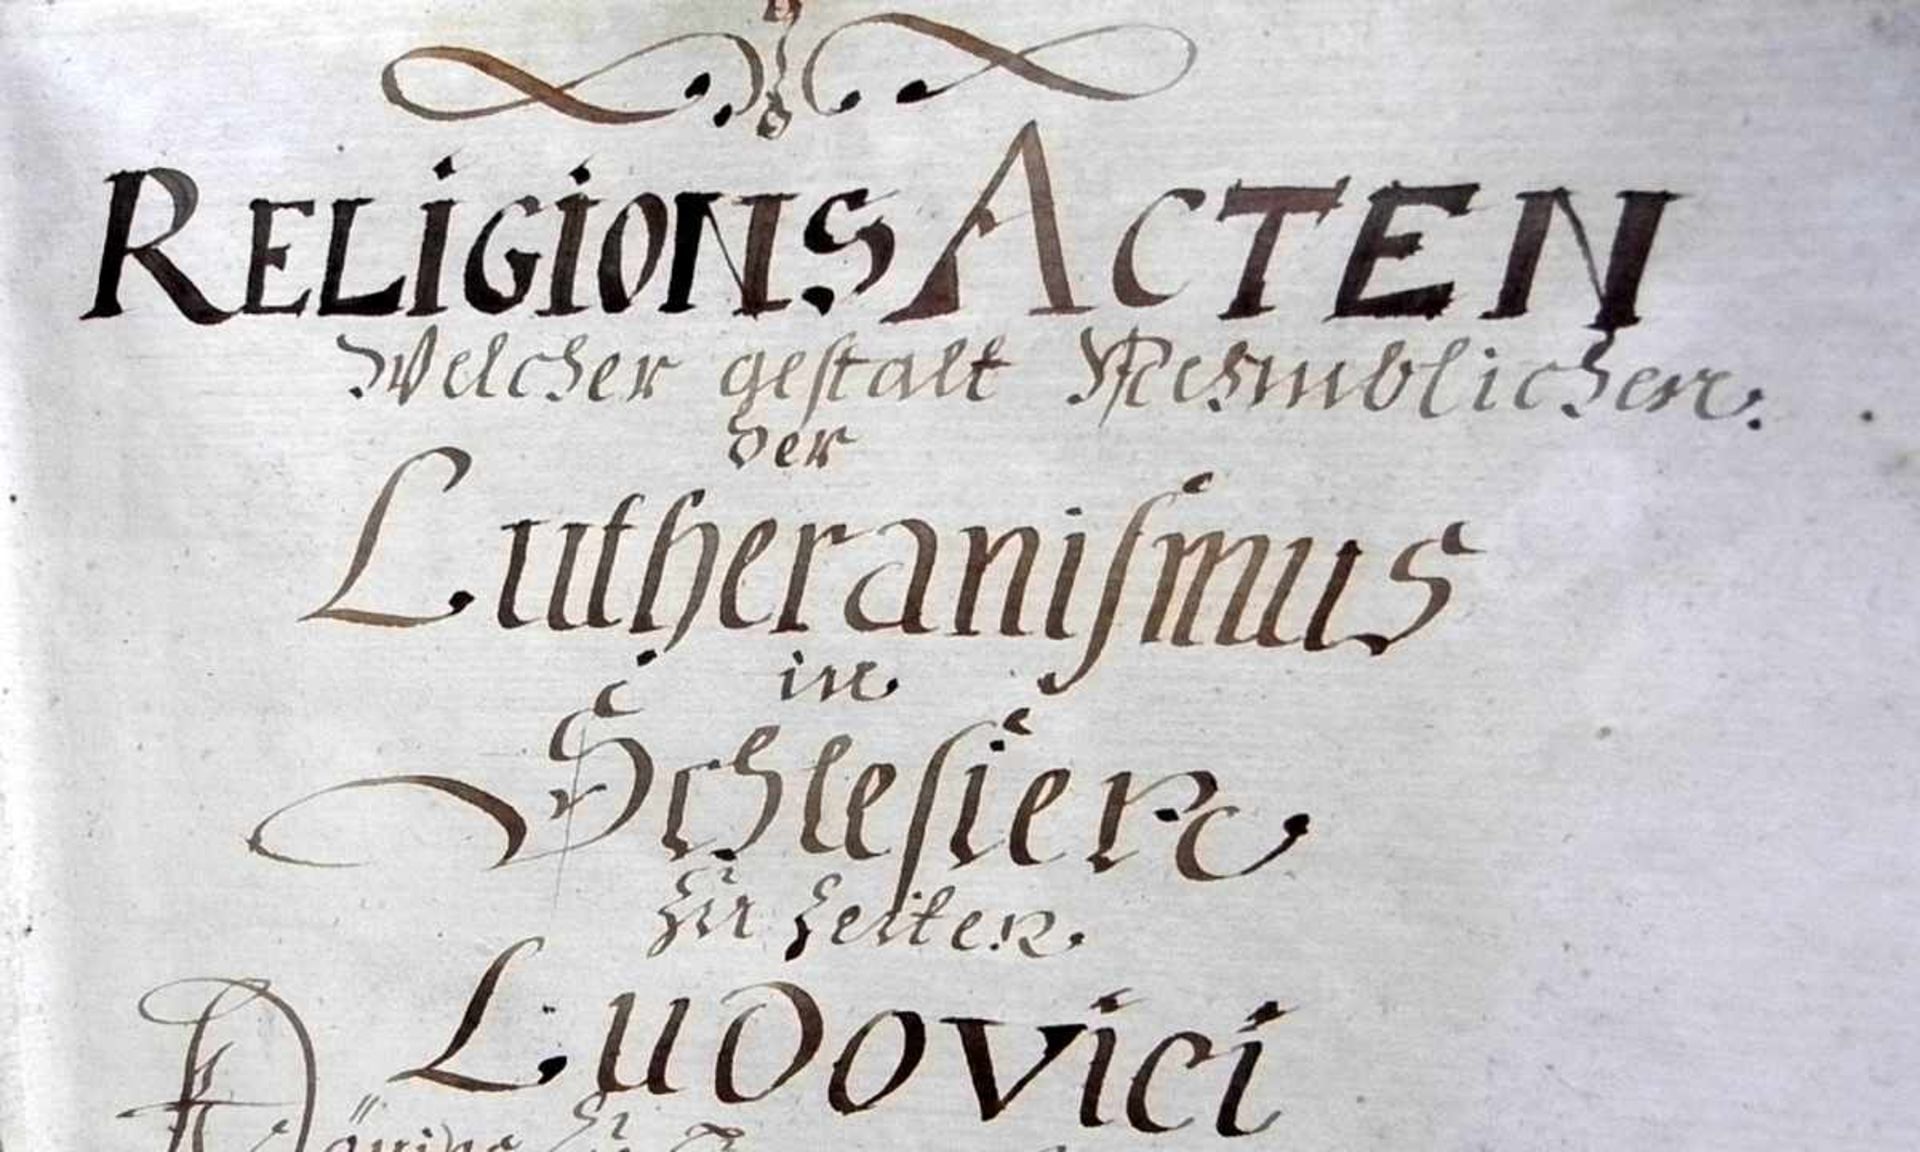 RELIGIONS ACTEN
Welcher gestalt Nehmblichen
der
Lutheranismus
in
Schlesien
Zu Zeiten
Ludovici